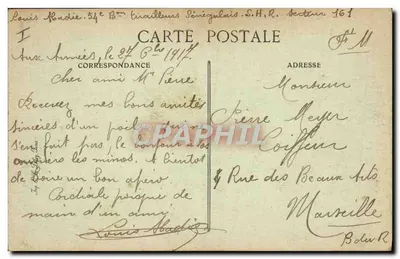 Louis Abadie. 54e Bon Tirailleurs Sénégalais. S.H.R. Secteur 161
I
CARTE POSTALE
F M
Aux Armées, le 27 8bre 1917
CORRESPONDANCE
ADRESSE
Cher ami Mr Pierre
Recevez mes bons amitiés
sincères d'un poilu qui
s'en fait pas, le bonjour à
les minos. A bientôt
de boire un bon apéro
Cordiale poigne de
main d'un amy
Louis Abadie
Monsieur
Pierre Meyer
Coiffeur
4 Rue des Beaux Arts
Marseille
B du R